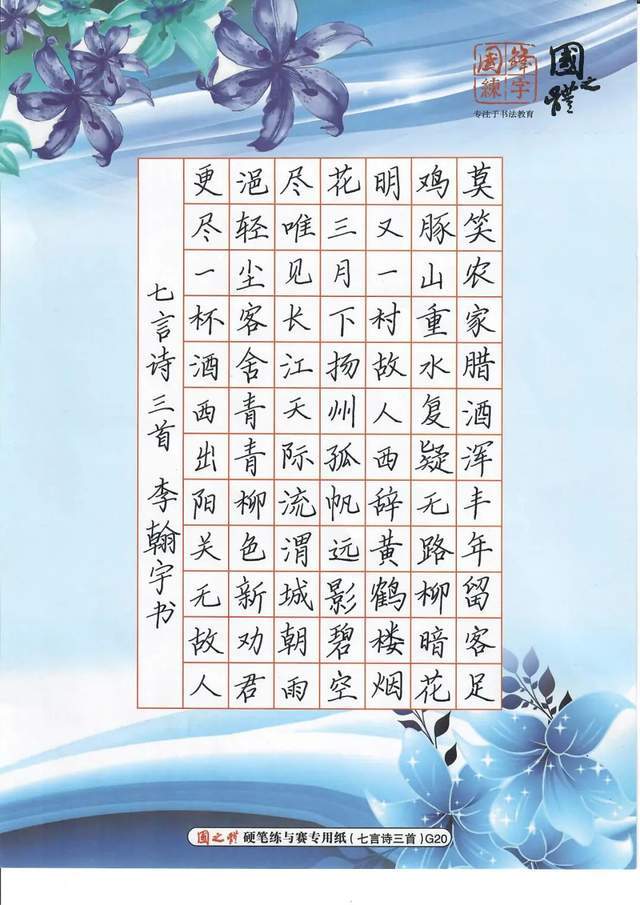 专注于书法教育
莫笑农家腊酒浑丰年留客足
鸡豚山重水复疑无路柳暗花
明又一村故人西辞黄鹤楼烟
花三月下扬州孤帆远影碧空
尽唯见长江天际流渭城朝雨
浥轻尘客舍青青柳色新劝君
更尽一杯酒西出阳关无故人
七言诗三首 李翰宇书
硬笔练与赛专用纸(七言诗三首)G20